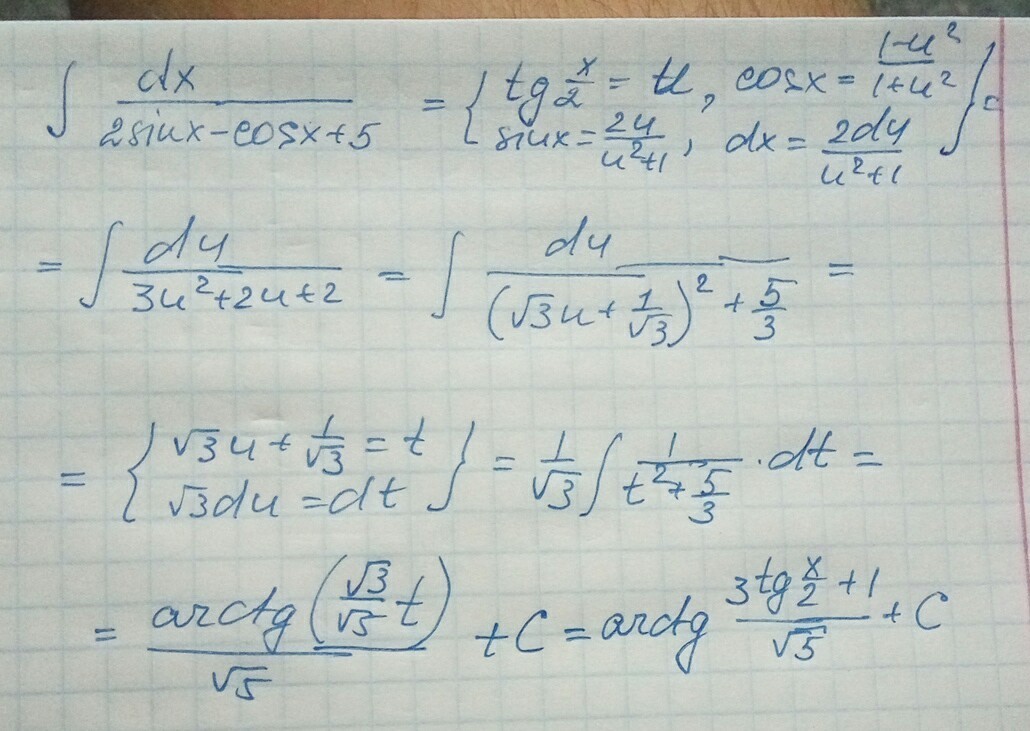 ∫ dx/(2sinx-cosx+5) = { tg x/2 = u, cosx = (1-u²)/(1+u²)
sinx = 2u/(u²+1), dx = 2du/(u²+1) } =
= ∫ du/(3u²+2u+2) = ∫ du/((√3u + 1/√3)² + 5/3) =
= { √3u + 1/√3 = t
√3du = dt } = 1/√3 ∫ 1/(t² + 5/3) · dt =
= arctg(√3/√5 t)/√5 + C = arctg (3tg x/2 + 1)/√5 + C